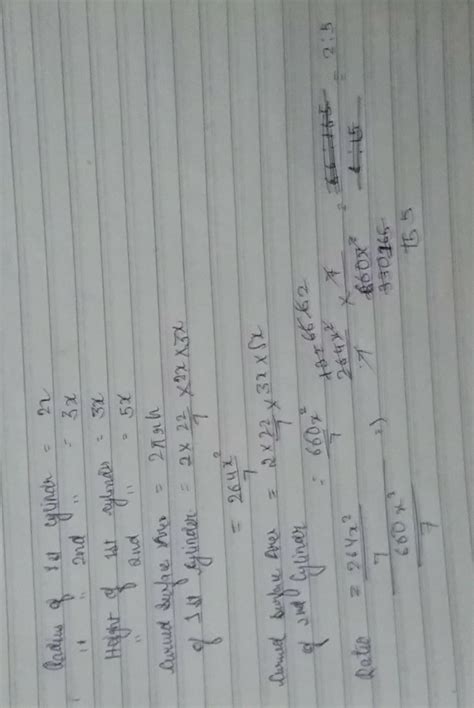 Radius of 1st cylinder = 2x
" " 2nd " = 3x
Height of 1st cylinder = 3x
" 2nd " = 5x
Curved surface Area = 2πrh
of 1st cylinder = 2 x 22/7 x 2x x 3x
= 264x²/7
Curved surface Area = 2 x 22/7 x 3x x 5x
of 2nd cylinder = 660x²/7
Ratio = 264x²/7 / 660x²/7 => 264x²/7 x 7/660x² = = 2:5